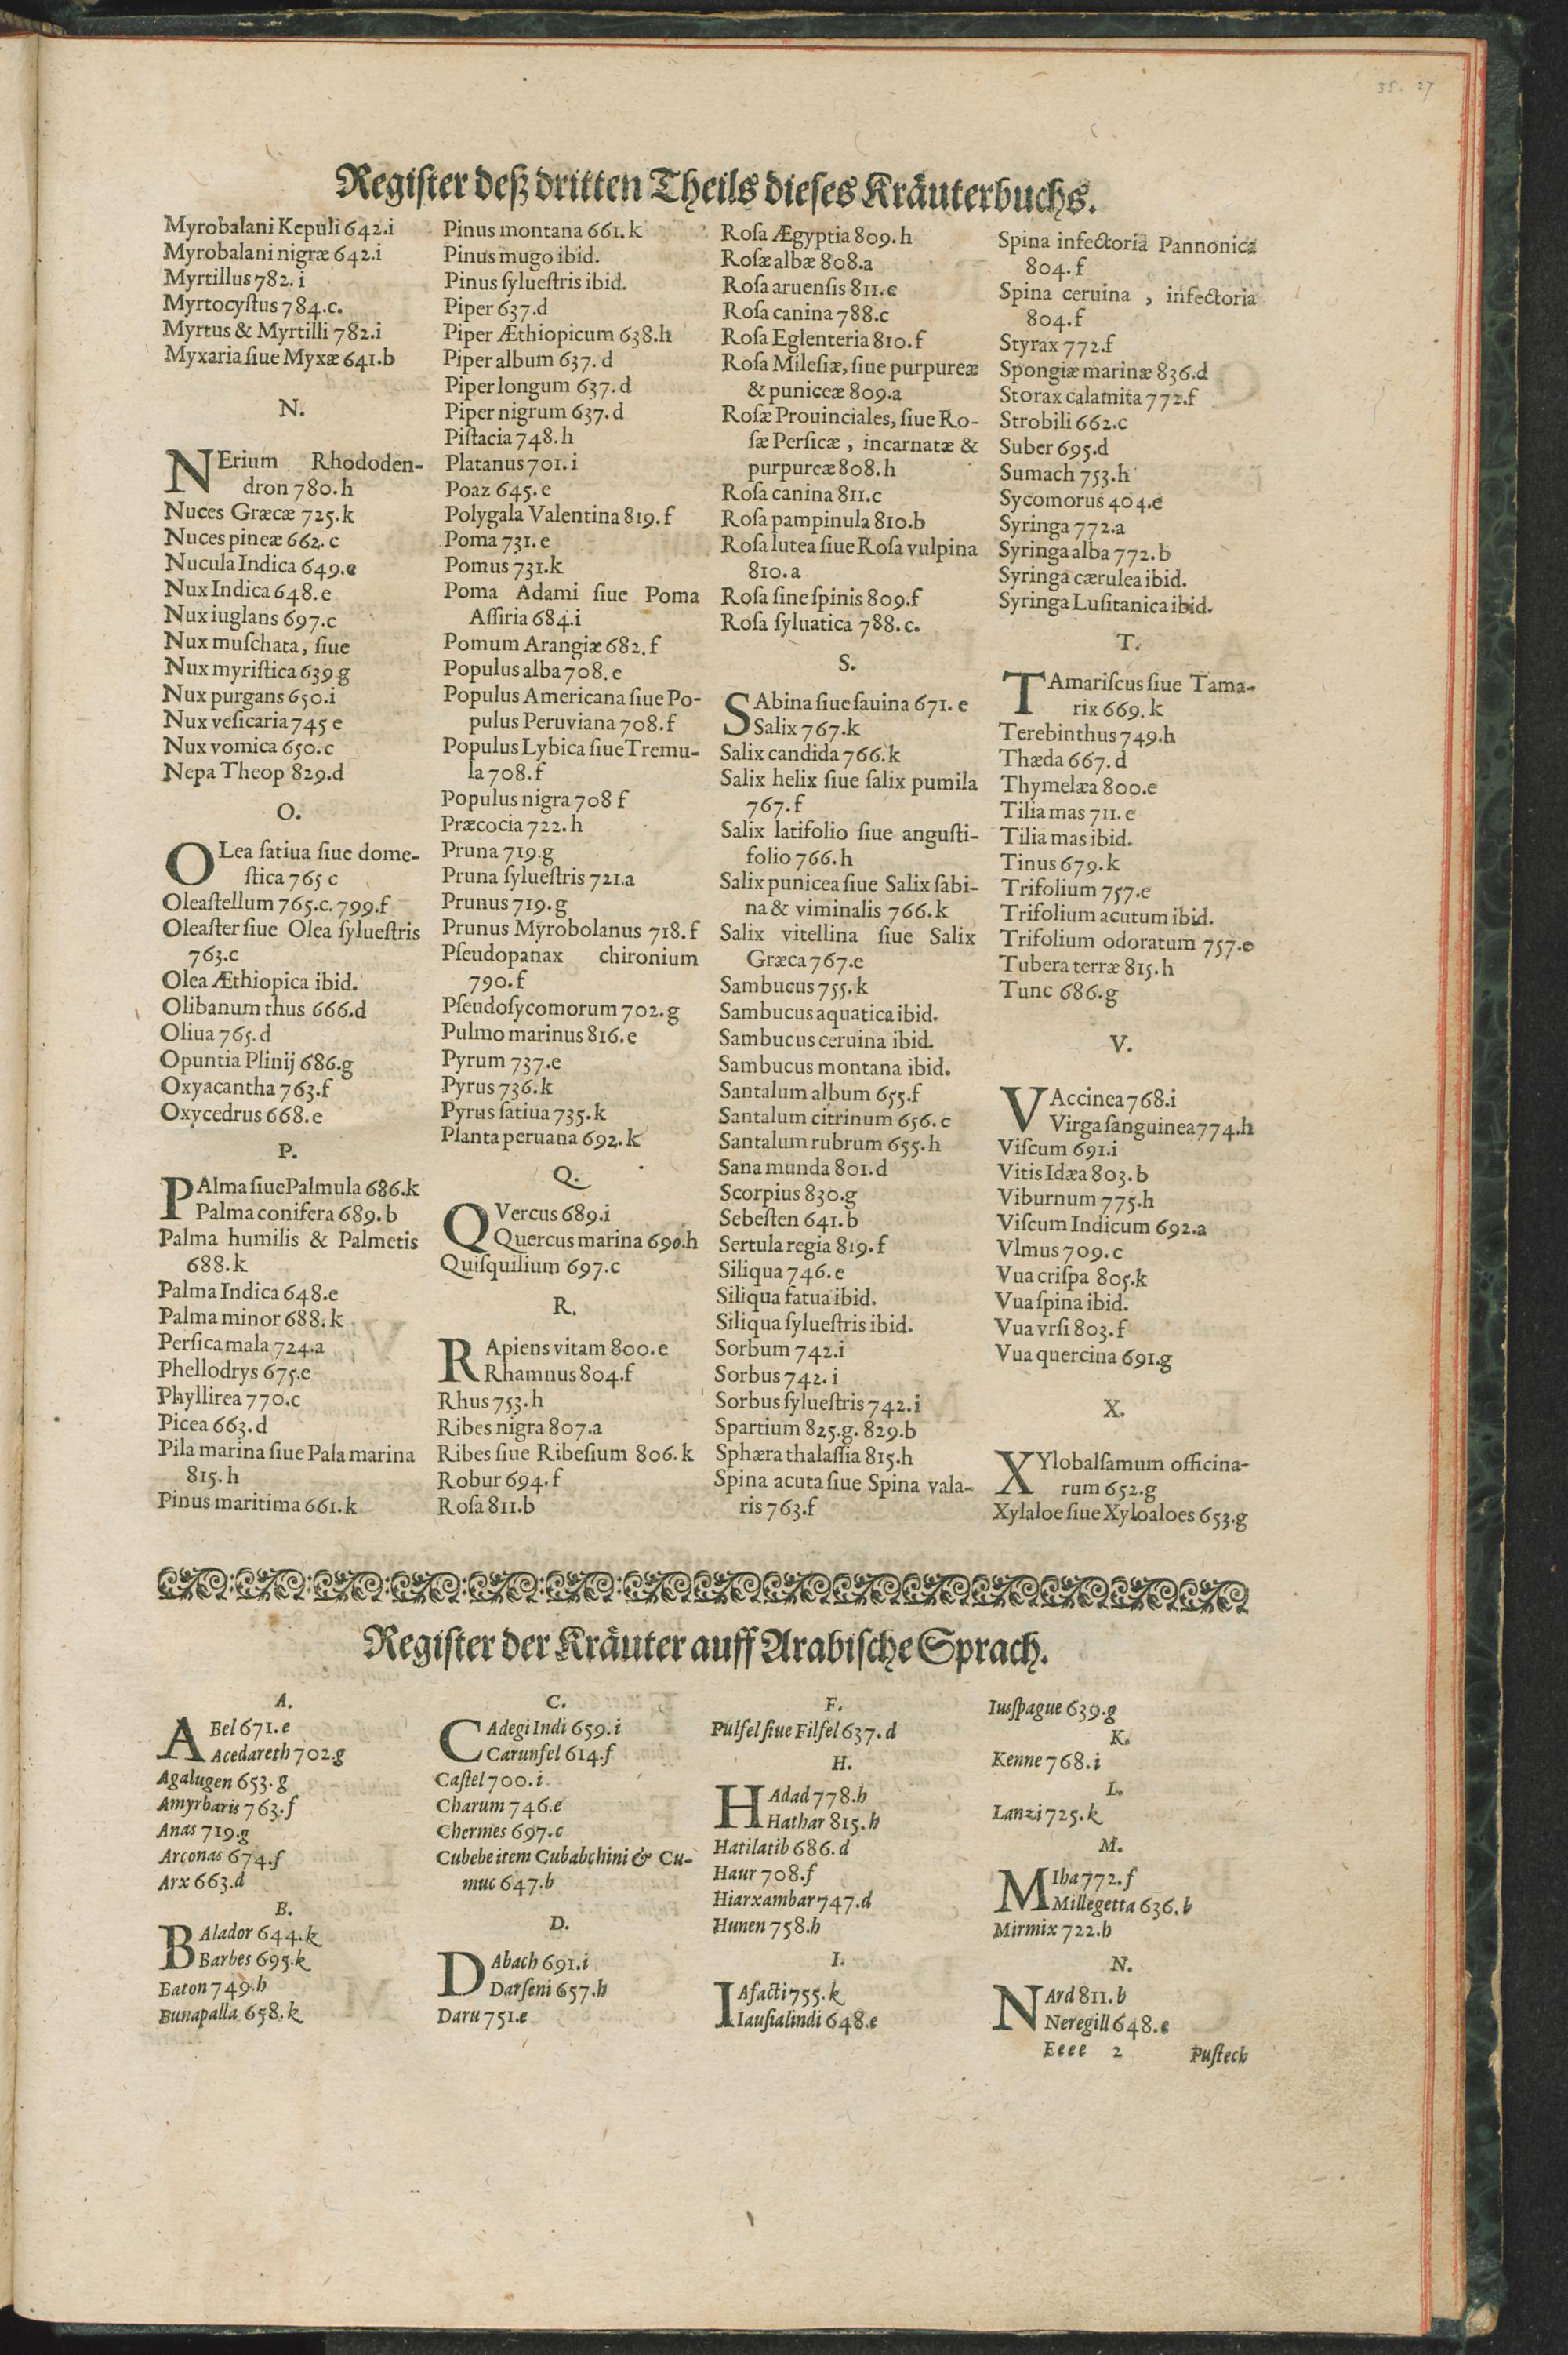 35. 27
Regiſter deß dritten Theils dieſes Kräuterbuchs.
Myrobalani Kepuli 642.i
Myrobalani nigræ 642.i
Myrtillus 782. i
Myrtocyſtus 784.c.
Myrtus & Myrtilli 782.i
Myxaria ſiue Myxæ 641.b
N.
NErium Rhododen-
dron 780.h
Nuces Græcæ 725.k
Nuces pineæ 662. c
Nucula Indica 649.e
Nux Indica 648.e
Nux iuglans 697.c
Nux muſchata, ſiue
Nux myriſtica 639.g
Nux purgans 650.i
Nux veſicaria 745 e
Nux vomica 650.c
Nepa Theop 829.d
O.
OLea ſatiua ſiue dome-
ſtica 765 c
Oleaſtellum 765.c. 799.f
Oleaſter ſiue Olea ſylueſtris
763.c
Olea Æthiopica ibid.
Olibanum thus 666.d
Oliua 765.d
Opuntia Plinij 686.g
Oxyacantha 763.f
Oxycedrus 668.e
P.
PAlma ſiue Palmula 686.k
Palma conifera 689.b
Palma humilis & Palmetis
688.k
Palma Indica 648.e
Palma minor 688.k
Perſica mala 724.a
Phellodrys 675.e
Phyllirea 770.c
Picea 663.d
Pila marina ſiue Pala marina
815.h
Pinus maritima 661.k
Pinus montana 661.k
Pinus mugo ibid.
Pinus ſylueſtris ibid.
Piper 637.d
Piper Æthiopicum 638.h
Piper album 637. d
Piper longum 637. d
Piper nigrum 637. d
Piſtacia 748.h
Platanus 701.i
Poaz 645.e
Polygala Valentina 819.f
Poma 731.e
Pomus 731.k
Poma Adami ſiue Poma
Aſſiria 684.i
Pomum Arangiæ 682.f
Populus alba 708.e
Populus Americana ſiue Po-
pulus Peruviana 708.f
Populus Lybica ſiue Tremu-
la 708.f
Populus nigra 708 f
Præcocia 722.h
Pruna 719.g
Pruna ſylueſtris 721.a
Prunus 719.g
Prunus Myrobolanus 718.f
Pſeudopanax chironium
790.f
Pſeudoſycomorum 702.g
Pulmo marinus 816.e
Pyrum 737.e
Pyrus 736.k
Pyrus ſatiua 735.k
Planta peruana 692.k
Q.
QVercus 689.i
Quercus marina 690.h
Quiſquilium 697.c
R.
RApiens vitam 800.e
Rhamnus 804.f
Rhus 753.h
Ribes nigra 807.a
Ribes ſiue Ribeſium 806.k
Robur 694.f
Roſa 811.b
Roſa Ægyptia 809.h
Roſæ albæ 808.a
Roſa aruenſis 811.c
Roſa canina 788.c
Roſa Eglenteria 810.f
Roſa Mileſiæ, ſiue purpureæ
& puniceæ 809.a
Roſæ Prouinciales, ſiue Ro-
ſæ Perſicæ, incarnatæ &
purpureæ 808.h
Roſa canina 811.c
Roſa pampinula 810.b
Roſa lutea ſiue Roſa vulpina
810.a
Roſa ſine ſpinis 809.f
Roſa ſyluatica 788.c.
S.
SAbina ſiue ſauina 671. e
Salix 767.k
Salix candida 766.k
Salix helix ſiue ſalix pumila
767.f
Salix latifolio ſiue anguſti-
folio 766.h
Salix punicea ſiue Salix ſabi-
na & viminalis 766.k
Salix vitellina ſiue Salix
Græca 767.e
Sambucus 755.k
Sambucus aquatica ibid.
Sambucus ceruina ibid.
Sambucus montana ibid.
Santalum album 655.f
Santalum citrinum 656.c
Santalum rubrum 655.h
Sana munda 801.d
Scorpius 830.g
Sebeſten 641.b
Sertula regia 819.f
Siliqua 746.e
Siliqua fatua ibid.
Siliqua ſylueſtris ibid.
Sorbum 742.i
Sorbus 742.i
Sorbus ſylueſtris 742.i
Spartium 825.g. 829.b
Sphæra thalaſſia 815.h
Spina acuta ſiue Spina vala-
ris 763.f
Spina infectoria Pannonica
804.f
Spina ceruina , infectoria
804.f
Styrax 772.f
Spongiæ marinæ 836.d
Storax calamita 772.f
Strobili 662.c
Suber 695.d
Sumach 753.h
Sycomorus 404.e
Syringa 772.a
Syringa alba 772.b
Syringa cærulea ibid.
Syringa Luſitanica ibid.
T.
TAmariſcus ſiue Tama-
rix 669.k
Terebinthus 749.h
Thæda 667.d
Thymelæa 800.e
Tilia mas 711.e
Tilia mas ibid.
Tinus 679.k
Trifolium 757.e
Trifolium acutum ibid.
Trifolium odoratum 757.e
Tubera terræ 815.h
Tunc 686.g
V.
VAccinea 768.i
Virga ſanguinea 774.h
Viſcum 691.i
Vitis Idæa 803.b
Viburnum 775.h
Viſcum Indicum 692.a
Vlmus 709.c
Vua criſpa 805.k
Vua ſpina ibid.
Vua vrſi 803.f
Vua quercina 691.g
X.
XYlobalſamum officina-
rum 652.g
Xylaloe ſiue Xyloaloes 653.g
Regiſter der Kräuter auff Arabiſche Sprach.
A.
ABel 671.e
Acedareth 702.g
Agalugen 653.g
Amyrbaris 763.f
Anas 719.g
Arconas 674.f
Arx 663.d
B.
BAlador 644.k
Barbes 695.k
Baton 749.h
Bunapalla 658.k
C.
CAdegi Indi 659.i
Carunfel 614.f
Caſtel 700.i
Charum 746.e
Chermes 697.c
Cubebe item Cubabchini & Cu-
muc 647.b
D.
DAbach 691.i
Darſeni 657.h
Daru 751.e
F.
Fulfel ſiue Filfel 637.d
H.
HAdad 778.h
Hathar 815.h
Hatilatib 686.d
Haur 708.f
Hiarxambar 747.d
Hunen 758.h
I.
IAfacti 755.k
Iauſialindi 648.e
Iusſpague 639.g
K.
Kenne 768.i
L.
Lanzi 725.k
M.
MIha 772.f
Millegetta 636.b
Mirmix 722.h
N.
NArd 811.b
Neregill 648.e
Eeee 2 Puſtech